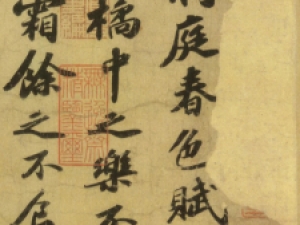 洞庭春色賦
橘中之樂不
霜餘之不食